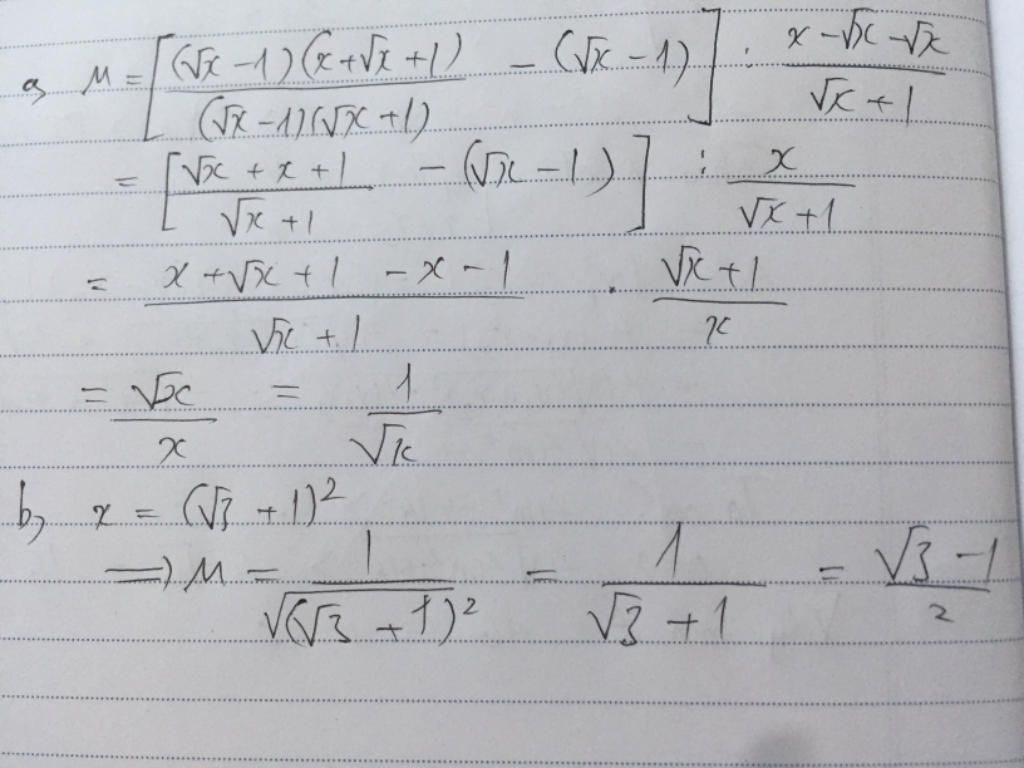 a, M = [ ((√x - 1)(x + √x + 1))/((√x - 1)(√x + 1)) - (√x - 1) ] : (x - √x - √x)/(√x + 1)
= [ (√x + x + 1)/(√x + 1) - (√x - 1) ] : x/(√x + 1)
= (x + √x + 1 - x - 1)/(√x + 1) . (√x + 1)/x
= √x/x = 1/√x
b, x = (√3 + 1)²
=> M = 1/√((√3 + 1)²) = 1/(√3 + 1) = (√3 - 1)/2